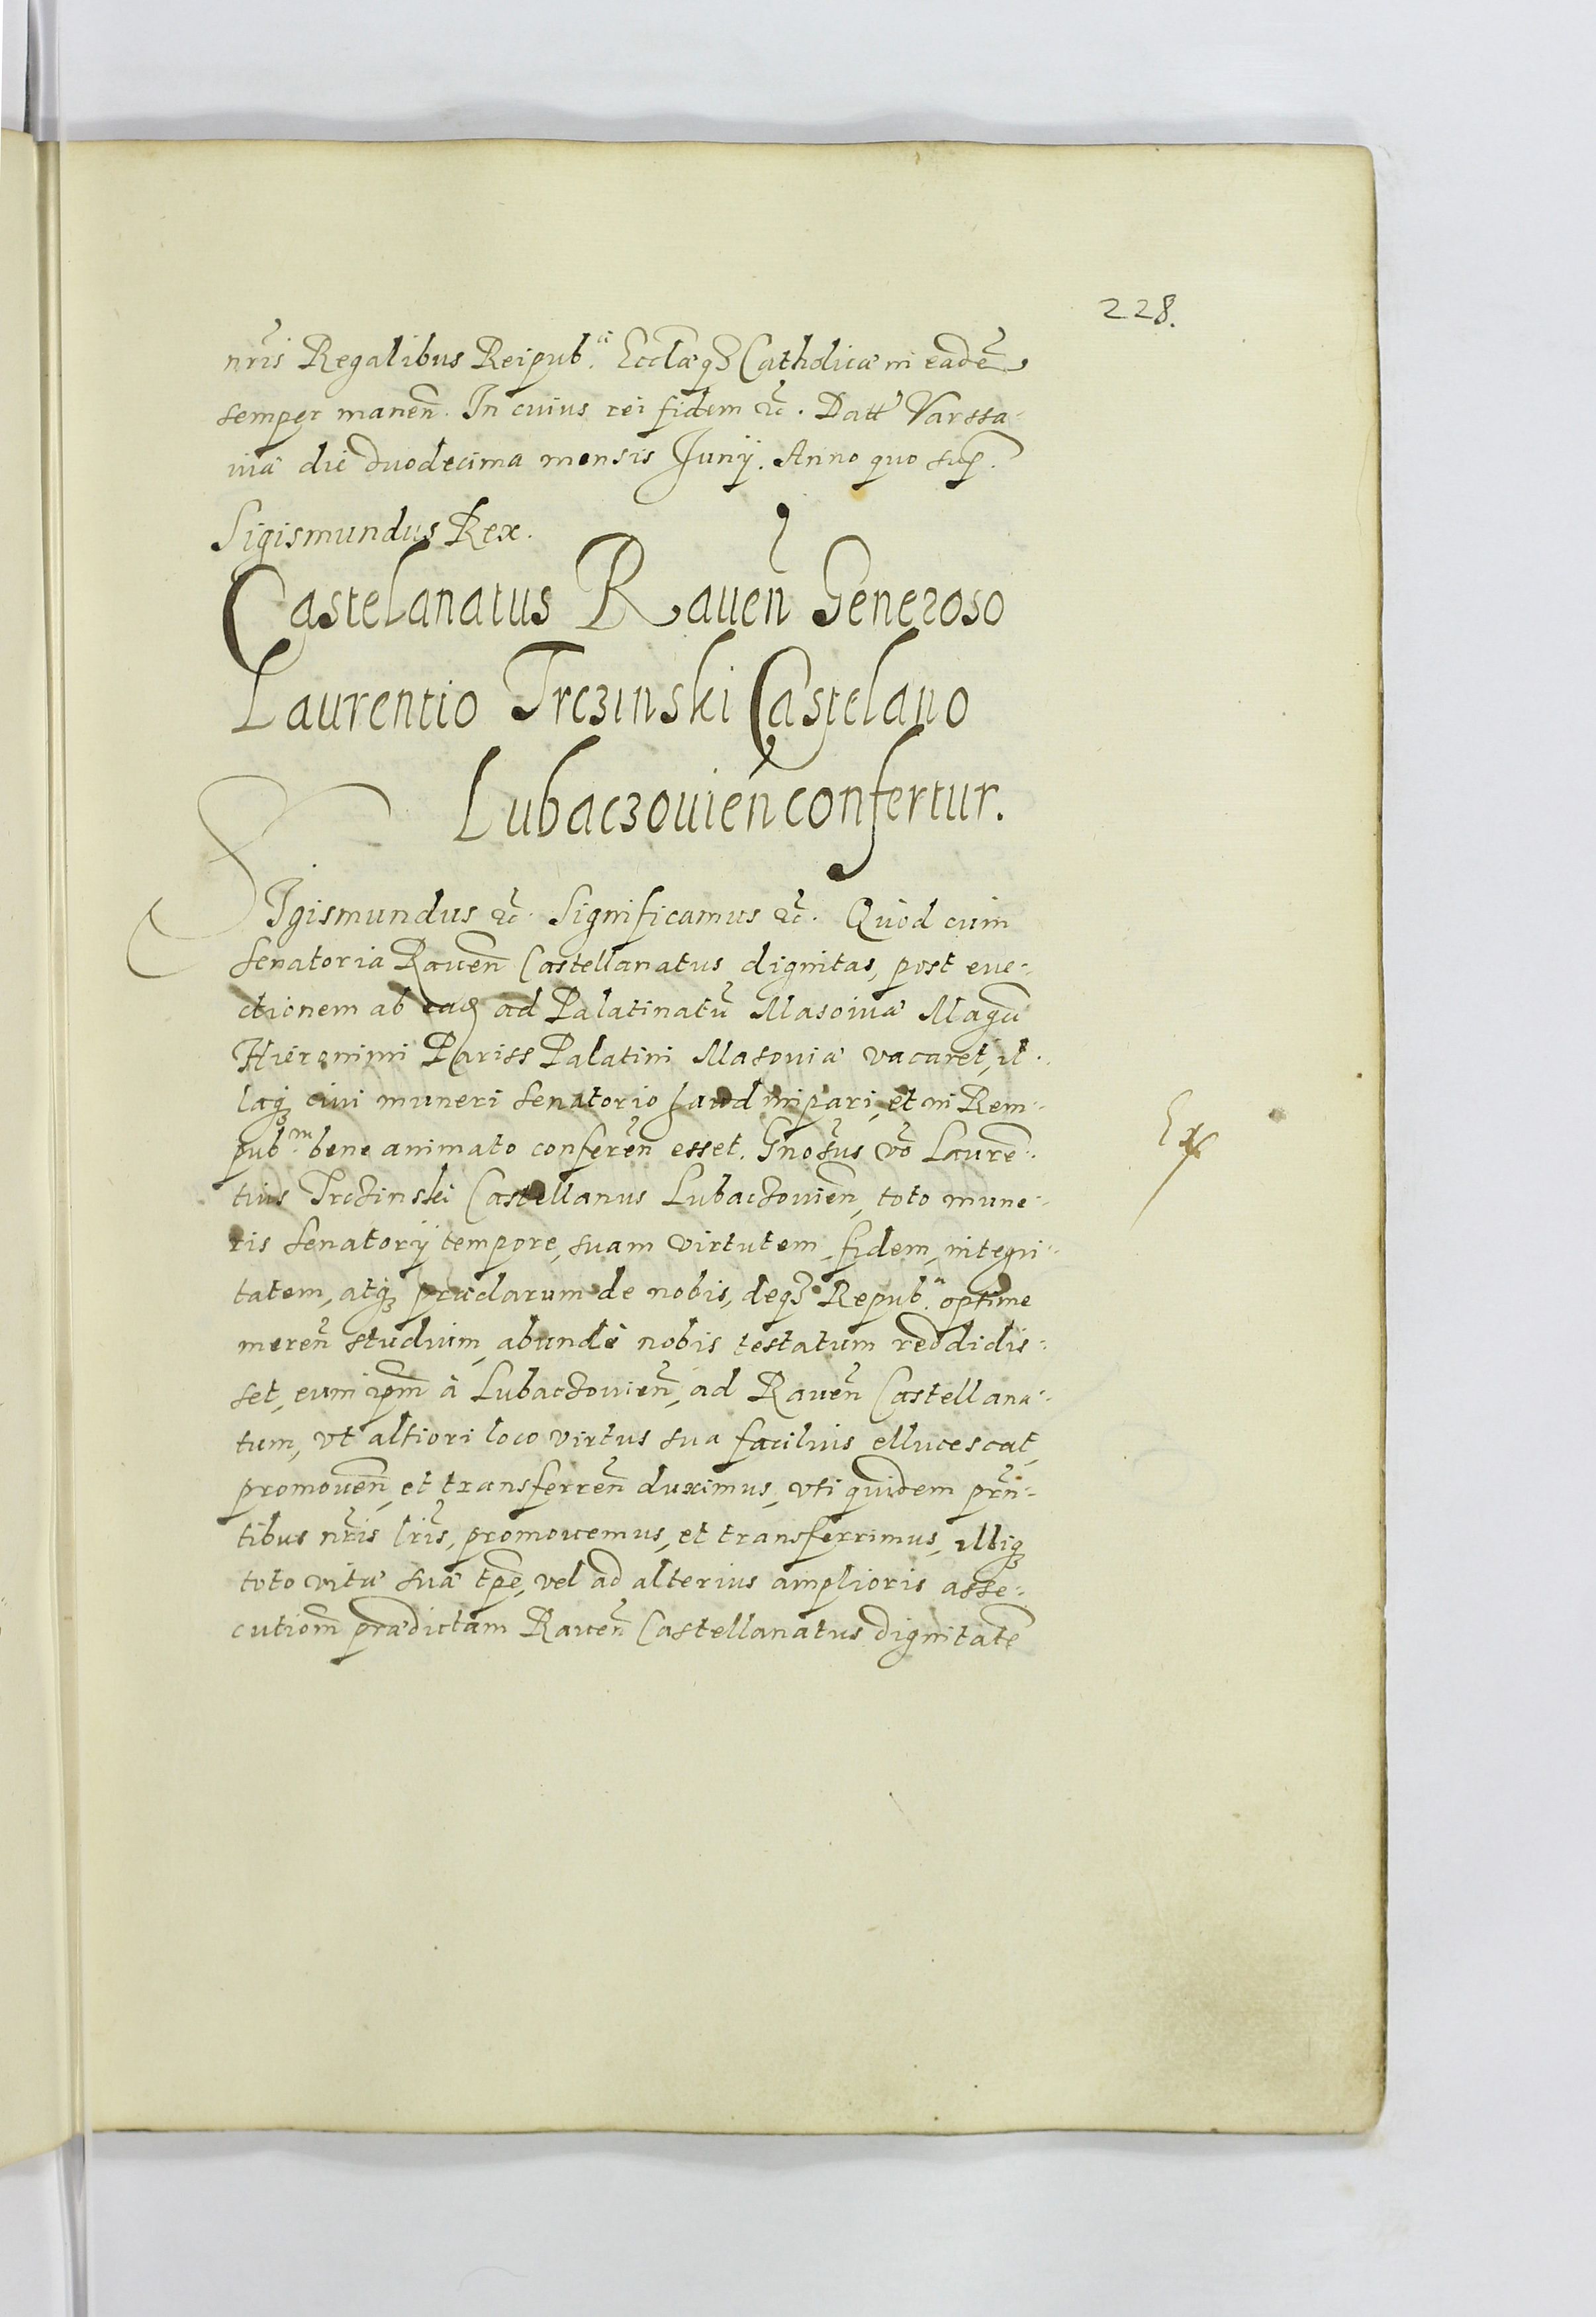 228.
nr̃is Regalibus Reipub.æ Ecclæq₃ Catholicæ in eadẽ
semper maneñ. In cuius rei fidem &c. Datt Varssa-
viæ die duodecima mensis Junÿ. Anno quo sup.
Sigismundus Rex.
Castelanatus Raueñ Generoso
Laurentio Trczinski Castelano
Lubaczouieñ confertur.
SIgismundus &c. Significamus &c. Quod cum
senatoria Raueñ Castellanatus dignitas, post eue-
ctionem ab ea ad Palatinatũ Masoviæ Magci
Hieronimi Pariss Palatini Masoviæ vacaret, il-
laq₃ viri muneri senatorio haud impari, et in Rem-
pub.m bene animato confereñ esset. Gnosus vo Laurẽ-
tius Trczinski Castellanus Lubaczouieñ, toto mune-
ris senatorÿ tempore, suam virtutem, fidem, integri-
tatem, atq₃ præclarum de nobis, deq₃ Repub.ca optime
mereñ studium, abundè nobis testatum reddidis-
set, eum ipm̃ à Lubaczouieñ, ad Raueñ Castellana-
tum, vt altiori loco virtus sua facilius ellucescat,
promoueñ, et transferreñ duximus, vti quidem prñ-
tibus nr̃is lr̃is, promouemus, et transferrimus, illiq₃
toto vitæ suæ tpẽ, vel ad alterius amplioris asse-
cutiom̃ prædictam Raueñ Castellanatus dignitatẽ
Ex